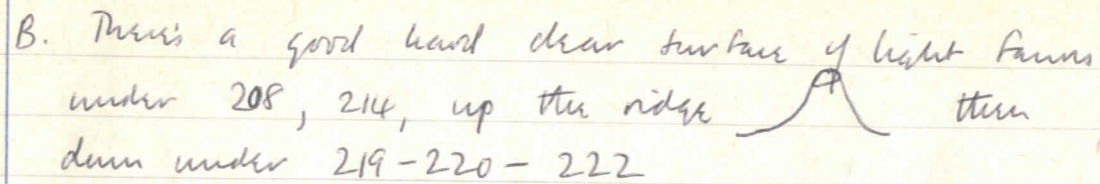 B. There's a good hard clear surface of light fawns
under 208, 214, up the ridge then
down under 219-220-222